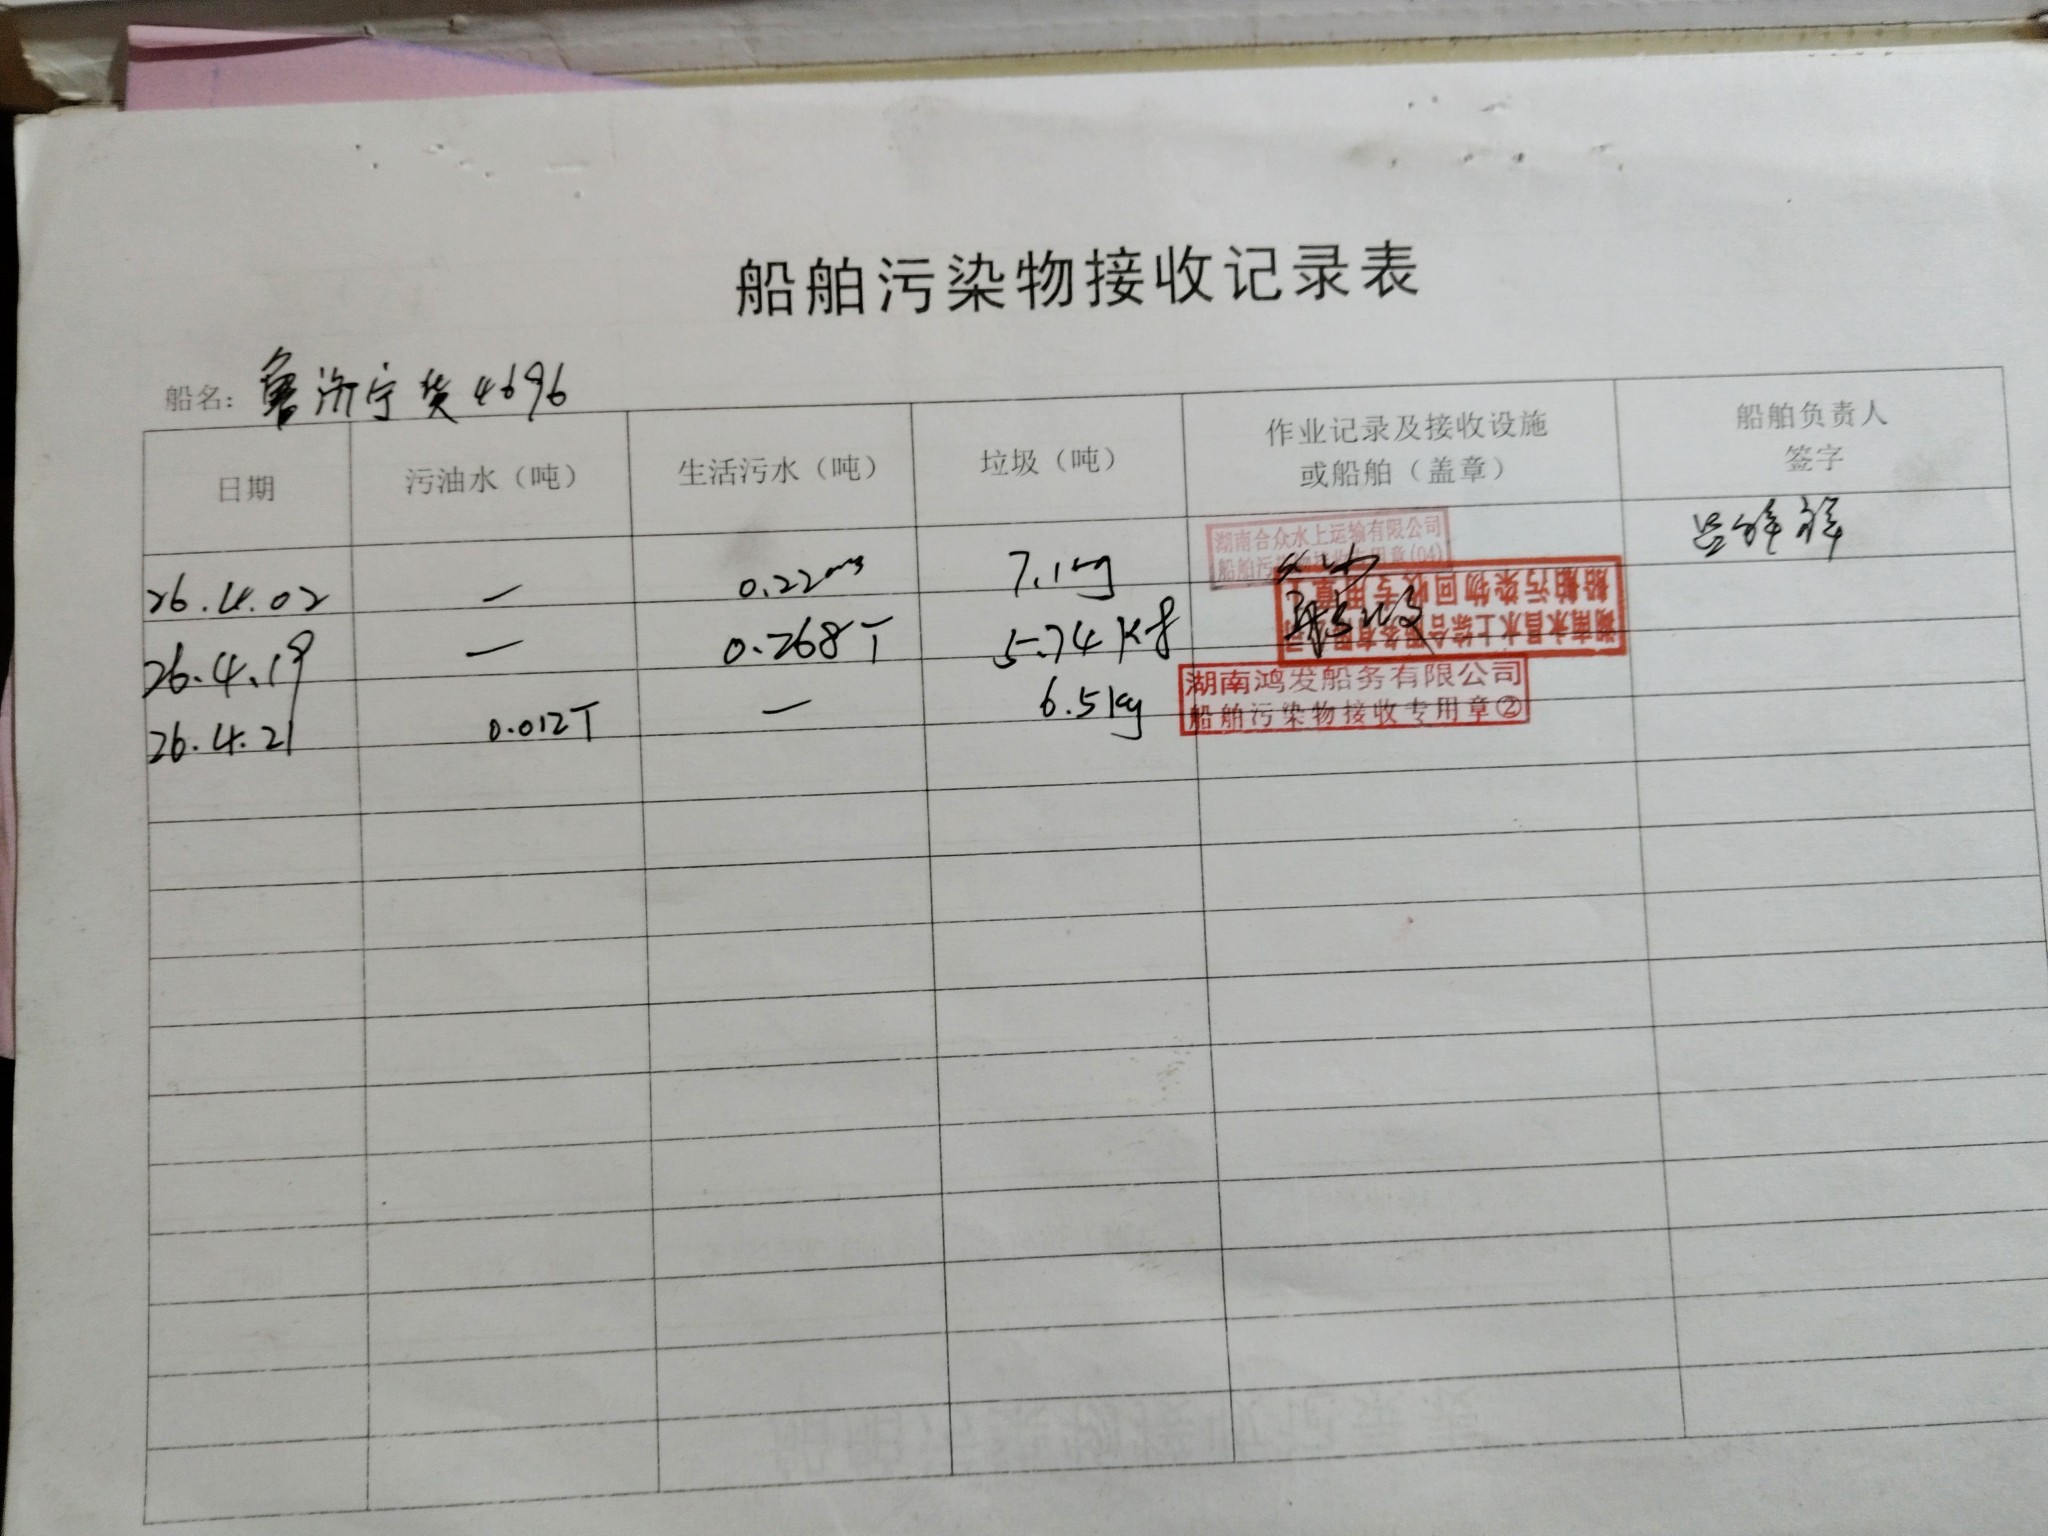 船舶污染物接收记录表
船名：鲁济宁货4696
日期 污油水（吨） 生活污水（吨） 垃圾（吨） 作业记录及接收设施或船舶（盖章） 船舶负责人签字
湖南合众水上运输有限公司
船舶污染物接收专用章(04)
26.4.02 — 0.22m³ 7.1kg
湖南永昌水上综合服务有限公司
船舶污染物回收专用章
26.4.19 — 0.268T 5.74Kg
湖南鸿发船务有限公司
船舶污染物接收专用章②
26.4.21 0.012T — 6.5kg